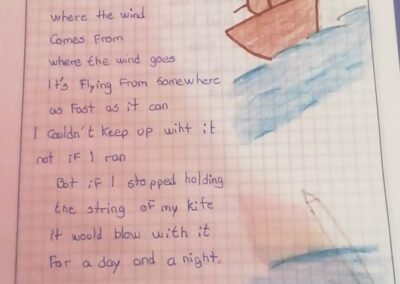 where the wind
Comes From
where the wind goes
It's Flying From Somewhere
as Fast as it can
I Couldn't keep up wiht it
not if I ran
But if I stopped holding
the string of my kite
It would blow with it
For a day and a night.